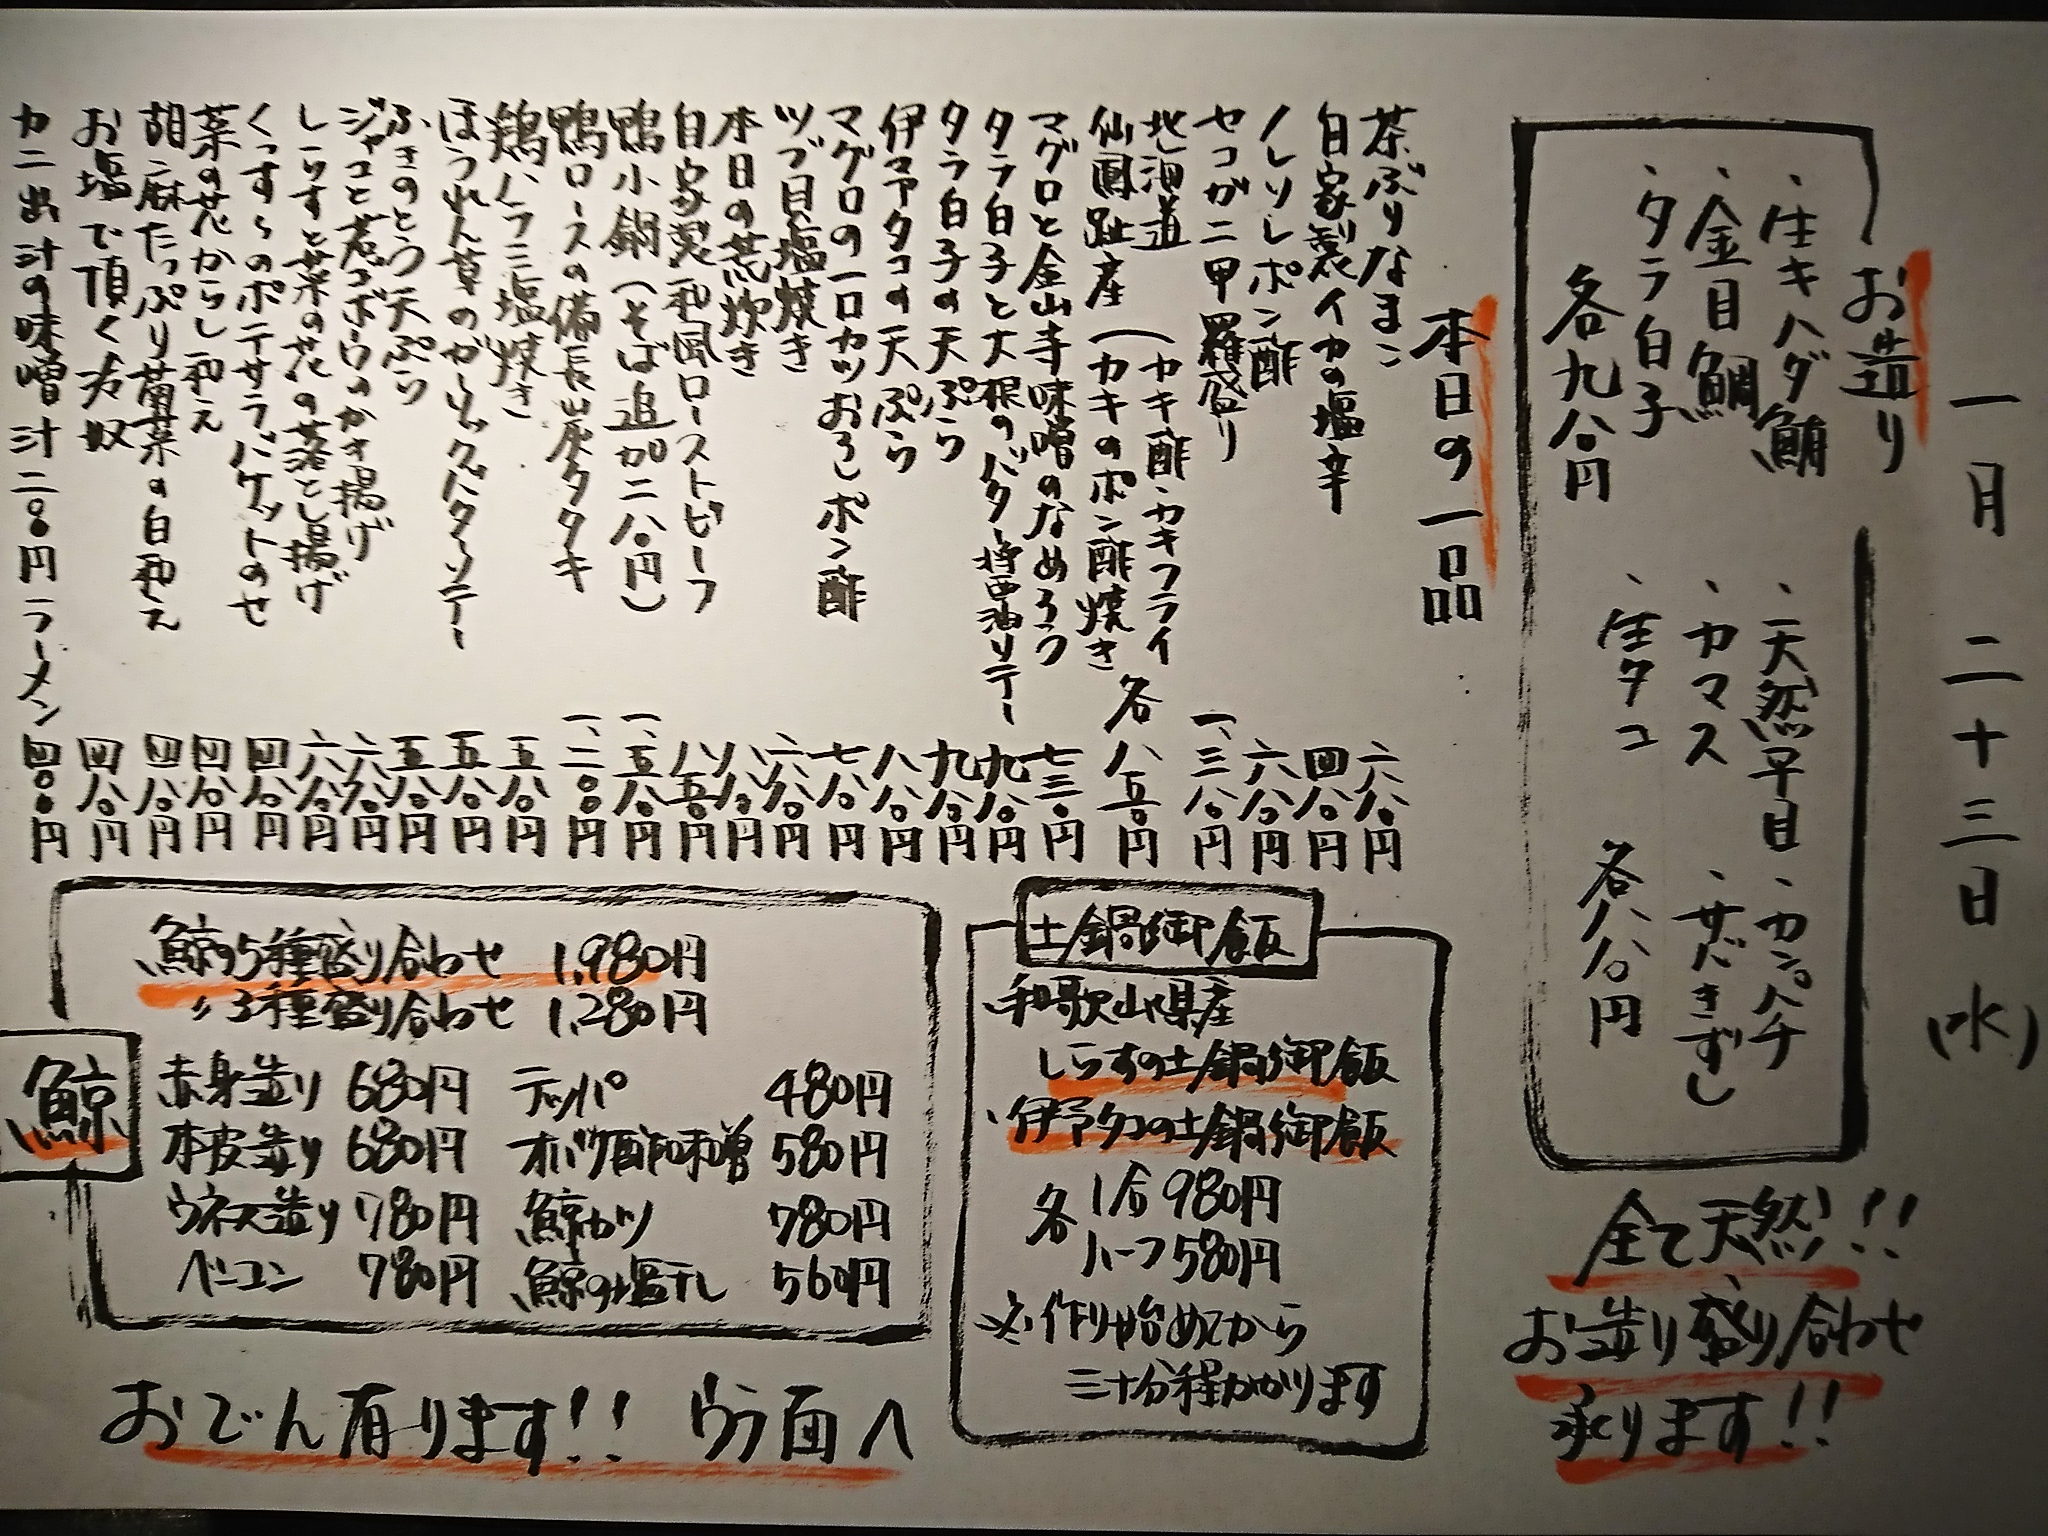 一月二十三日(水)
お造り
、生キハダ鮪
、金目鯛
、タラ白子
各九八〇円
、天然平目、カンパチ
、カマス、サバきずし
、生タコ
各八八〇円
全て天然!!
お造り盛り合わせ
承ります!!
本日の一品
茶ぶりなまこ 六八〇円
自家製イカの塩辛 四八〇円
ノレソレポン酢 六八〇円
セコガニ甲羅盛り 一、三八〇円
北海道
仙鳳趾産(カキ酢・カキフライ
(カキのポン酢焼き 各八五〇円
マグロと金山寺味噌のなめろう 七三〇円
タラ白子と大根のバター醤油ソテー 九八〇円
タラ白子の天ぷら 九八〇円
伊予タコの天ぷら 八八〇円
マグロの一口カツおろしポン酢 七八〇円
ツブ貝塩焼き 六八〇円
本日の荒炊き 八八〇円
自家製和風ローストビーフ 八五〇円
鴨小鍋(そば追加二八〇円) 一、五八〇円
鴨ロースの備長炭タタキ 一、二〇〇円
鶏ハラミ塩焼き 五八〇円
ほうれん草のガーリックバターソテー 五八〇円
ふきのとう天ぷら 五八〇円
ジャコと若ゴボウのかき揚げ 六八〇円
しらすと菜の花の落とし揚げ 六八〇円
くっすんのポテサラバケットのせ 四八〇円
菜の花からし和え 四八〇円
胡麻たっぷり菊菜の白和え 四八〇円
お塩で頂く冷奴 四八〇円
カニ出汁の味噌汁二〇〇円ラーメン四〇〇円
土鍋御飯
、和歌山県産
しらすの土鍋御飯
、伊予タコの土鍋御飯
各 1合980円
ハーフ580円
※作り始めてから
三十分程かかります
鯨
鯨の5種盛り合わせ 1,980円
〃3種盛り合わせ 1,280円
赤身造り 680円 テッパ 480円
本皮造り 680円 オバケ酢味噌 580円
ウネス造り 780円 鯨カツ 780円
ベーコン 780円 鯨の塩干し 560円
おでん有ります!! ウラ面へ